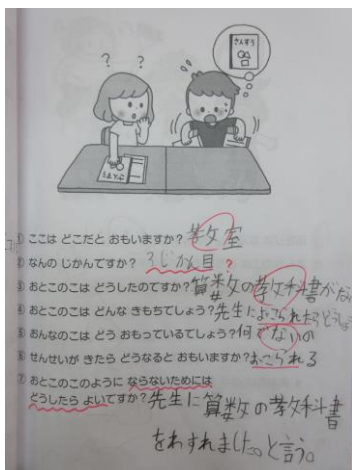 ? ?
さんすう
さんすう
① ここは どこだと おもいますか? 教室
② なんの じかんですか? 3じかん目 ?
③ おとこのこは どうしたのですか? 算数の教科書がな
④ おとこのこは どんな きもちでしょう? 先生におこられたらどうしよ
⑤ おんなのこは どう おもっているでしょう? 何でないの
⑥ せんせいが きたら どうなると おもいますか? おこられる
⑦ おとこのこのように ならないためには
どうしたら よいですか? 先生に算数の教科書
をわすれました。と言う。